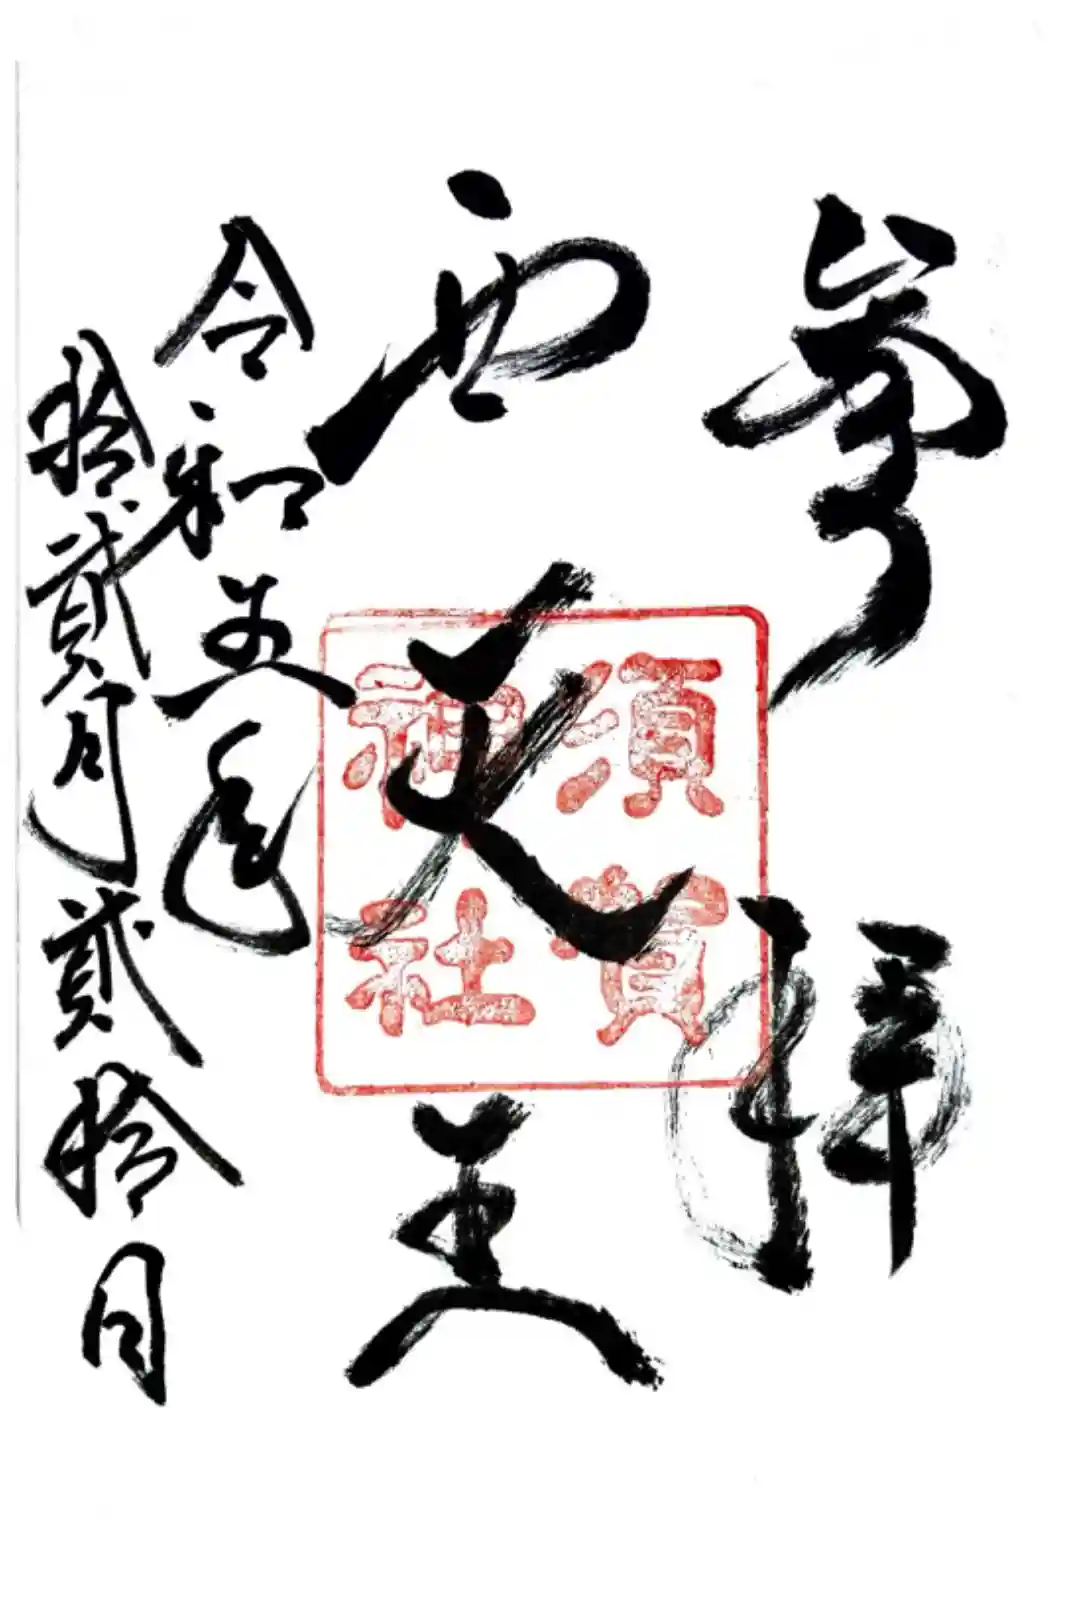 奉拝
西天王
須賀
神社
令和五年
拾貳月貳拾日